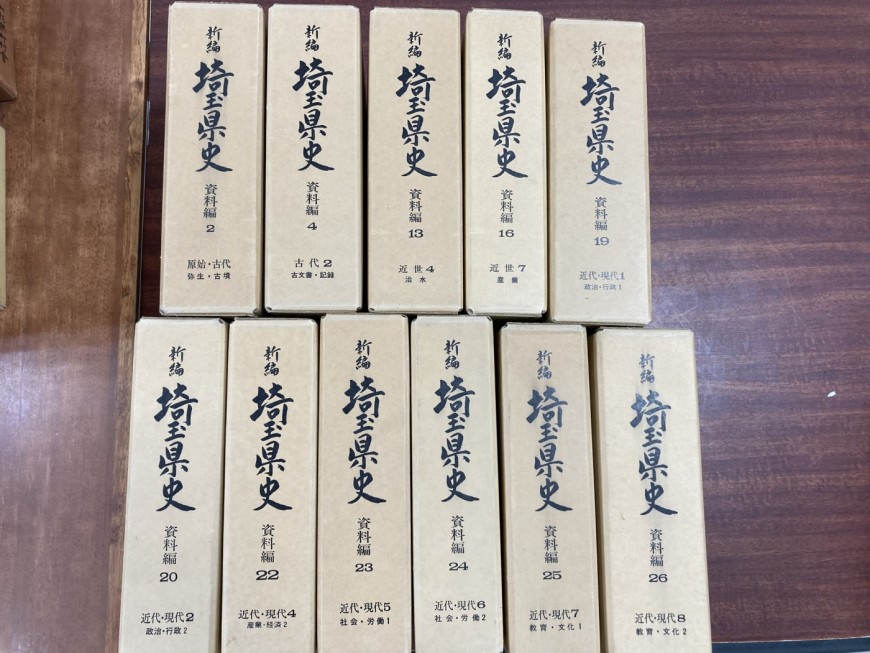 新編
埼玉県史
資料編
2
原始・古代
弥生・古墳
新編
埼玉県史
資料編
4
古代2
古文書・記録
新編
埼玉県史
資料編
13
近世4
治水
新編
埼玉県史
資料編
16
近世7
産業
新編
埼玉県史
資料編
19
近代・現代1
政治・行政1
新編
埼玉県史
資料編
20
近代・現代2
政治・行政2
新編
埼玉県史
資料編
22
近代・現代4
産業・経済2
新編
埼玉県史
資料編
23
近代・現代5
社会・労働1
新編
埼玉県史
資料編
24
近代・現代6
社会・労働2
新編
埼玉県史
資料編
25
近代・現代7
教育・文化1
新編
埼玉県史
資料編
26
近代・現代8
教育・文化2